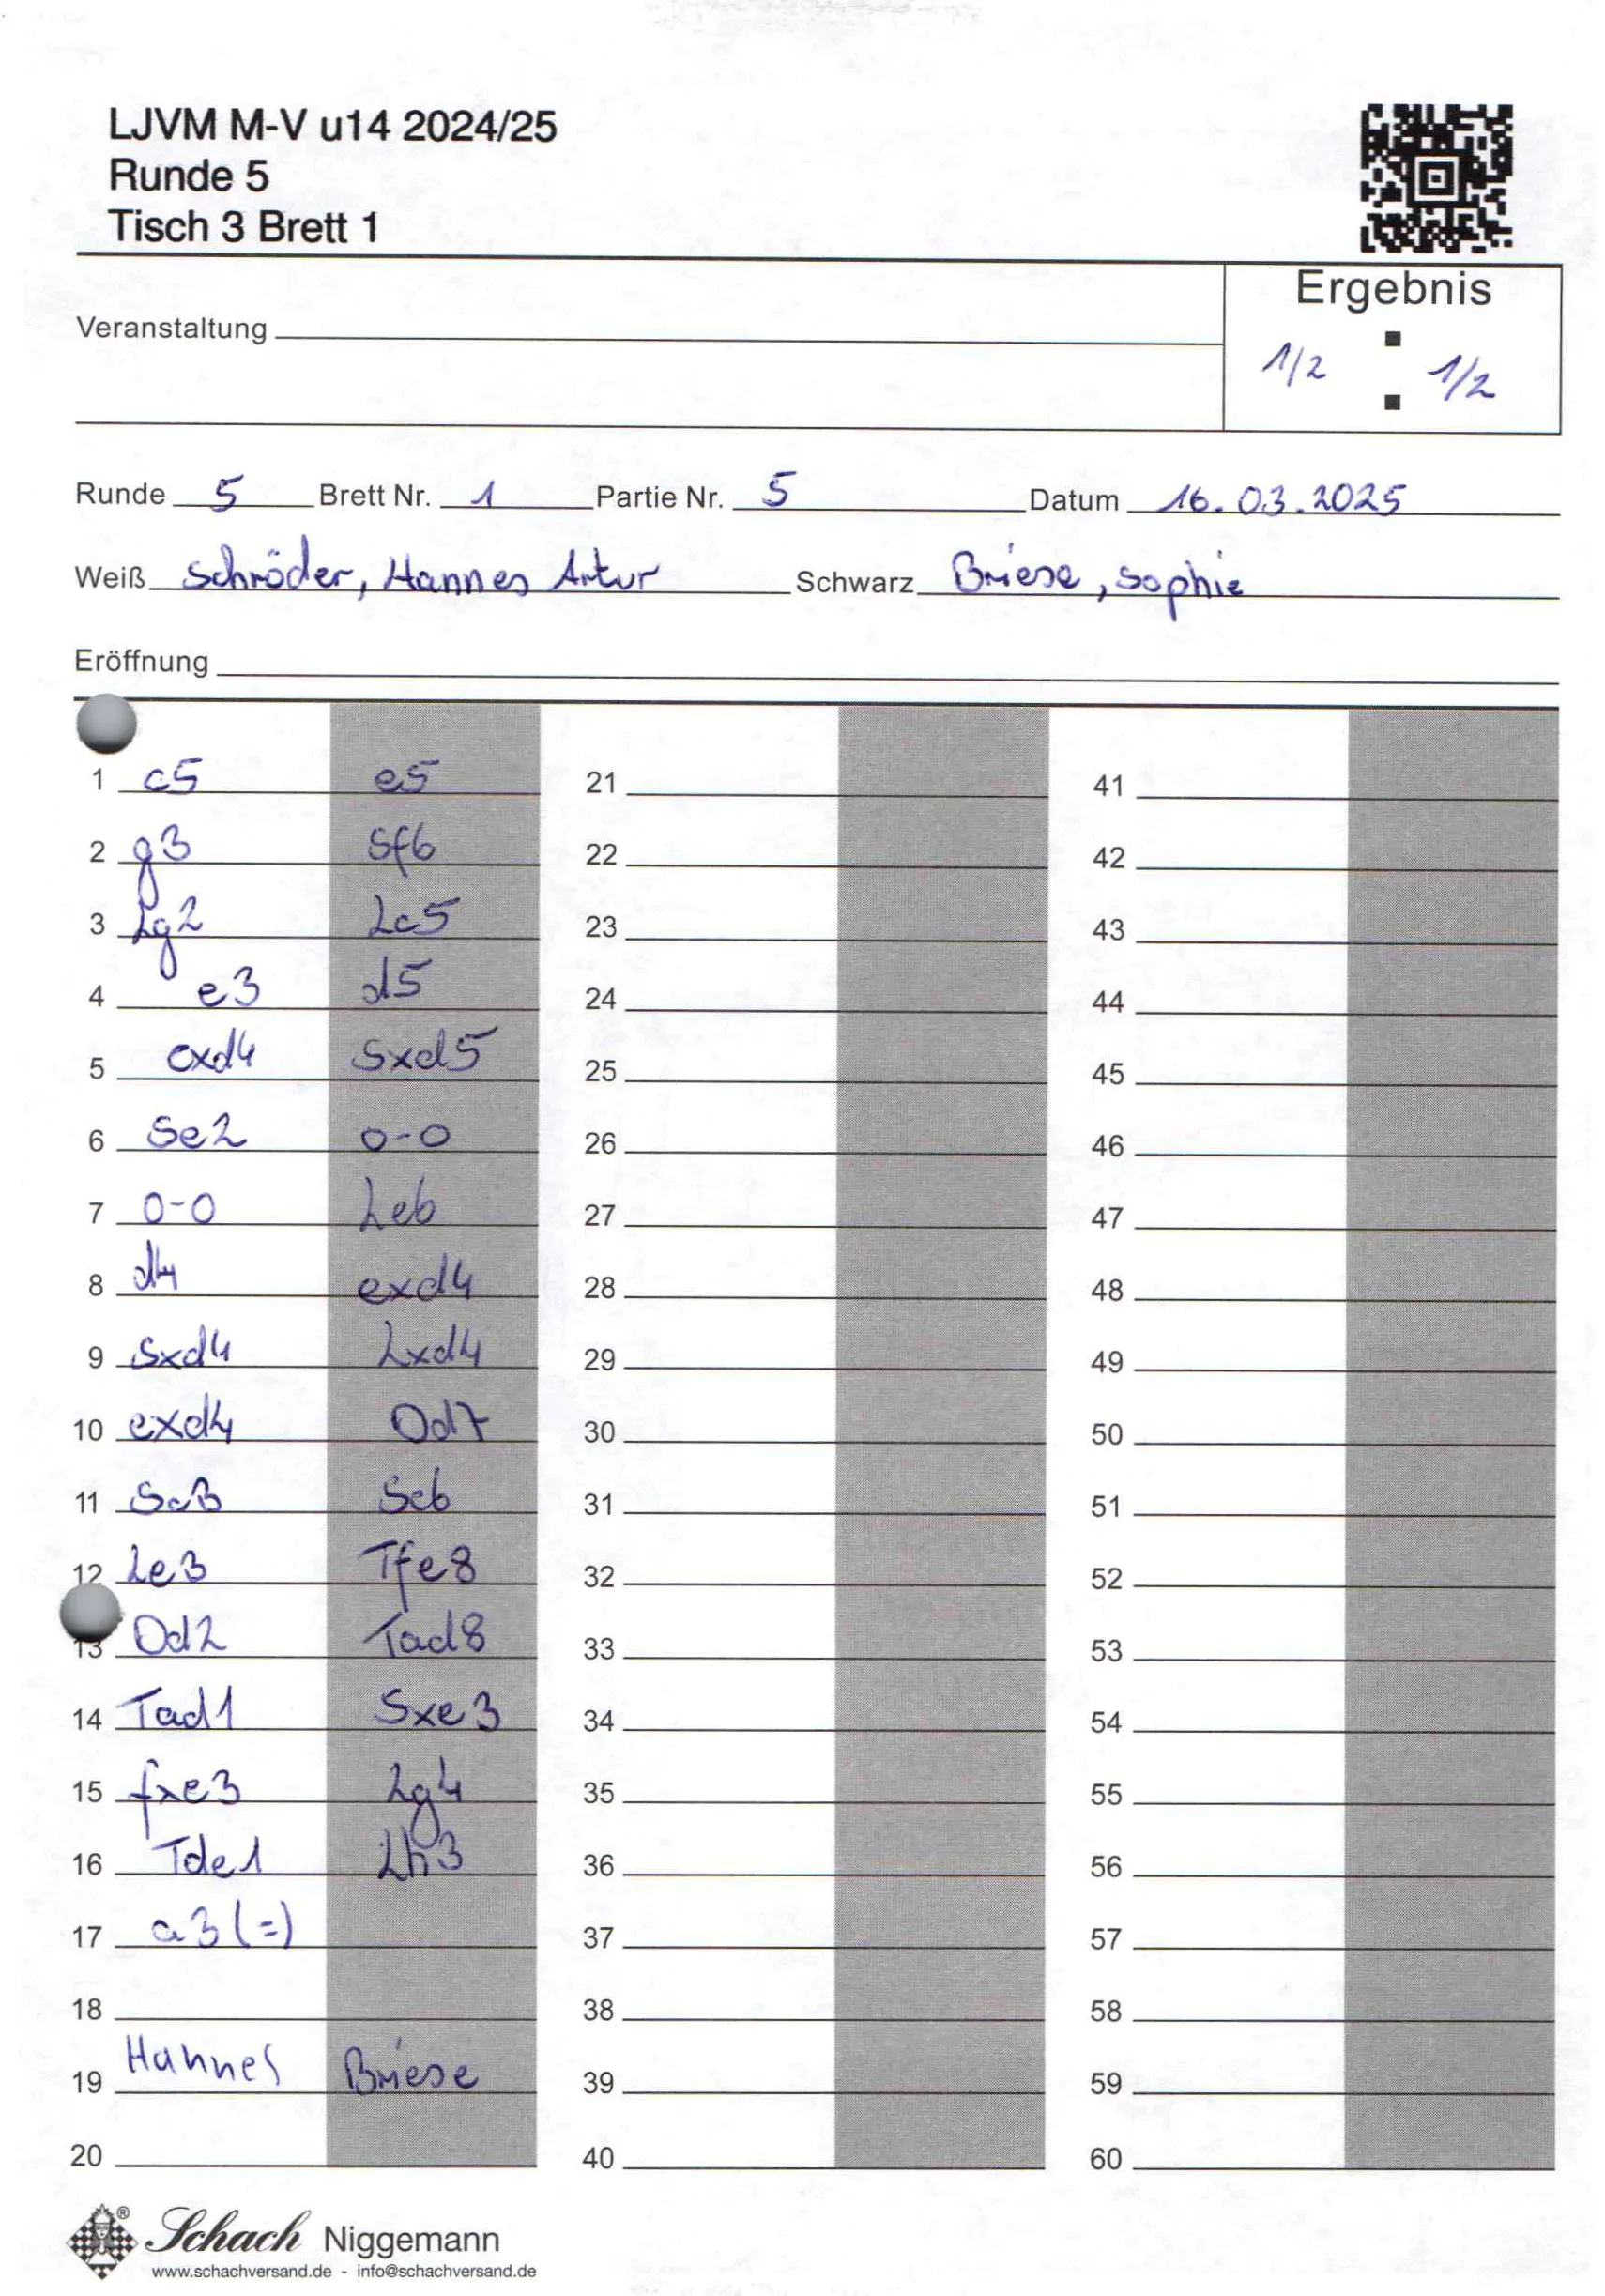 LJVM M-V u14 2024/25
Runde 5
Tisch 3 Brett 1
Ergebnis
Veranstaltung
1/2 : 1/2
Runde 5 Brett Nr. 1 Partie Nr. 5 Datum 16.03.2025
Weiß Schröder, Hannes Artur Schwarz Briese, Sophie
Eröffnung
1 c5 e5 21 41
2 g3 Sf6 22 42
3 Lg2 Lc5 23 43
4 e3 d5 24 44
5 cxd4 Sxd5 25 45
6 Se2 0-0 26 46
7 0-0 Le6 27 47
8 d4 exd4 28 48
9 Sxd4 Lxd4 29 49
10 exd4 Dd7 30 50
11 Sc3 Sc6 31 51
12 Le3 Tfe8 32 52
13 Dd2 Tad8 33 53
14 Tad1 Sxe3 34 54
15 fxe3 Lg4 35 55
16 Tde1 Lh3 36 56
17 a3 (=) 37 57
18 38 58
19 Hannes Briese 39 59
20 40 60
Schach Niggemann
www.schachversand.de - info@schachversand.de